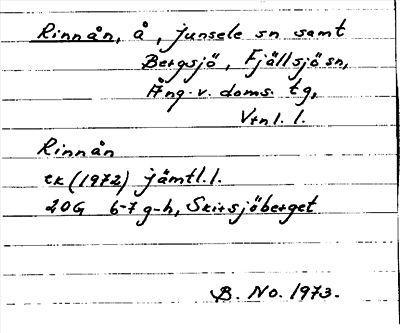 Rinnån, å, Junsele sn samt
Bergsjö, Fjällsjö sn,
Ång. v. doms. tg,
Vtnl. l.
Rinnån
ek (1972) jämtl. l.
20G 6-7 g-h, Skirsjöberget
B. No. 1973.